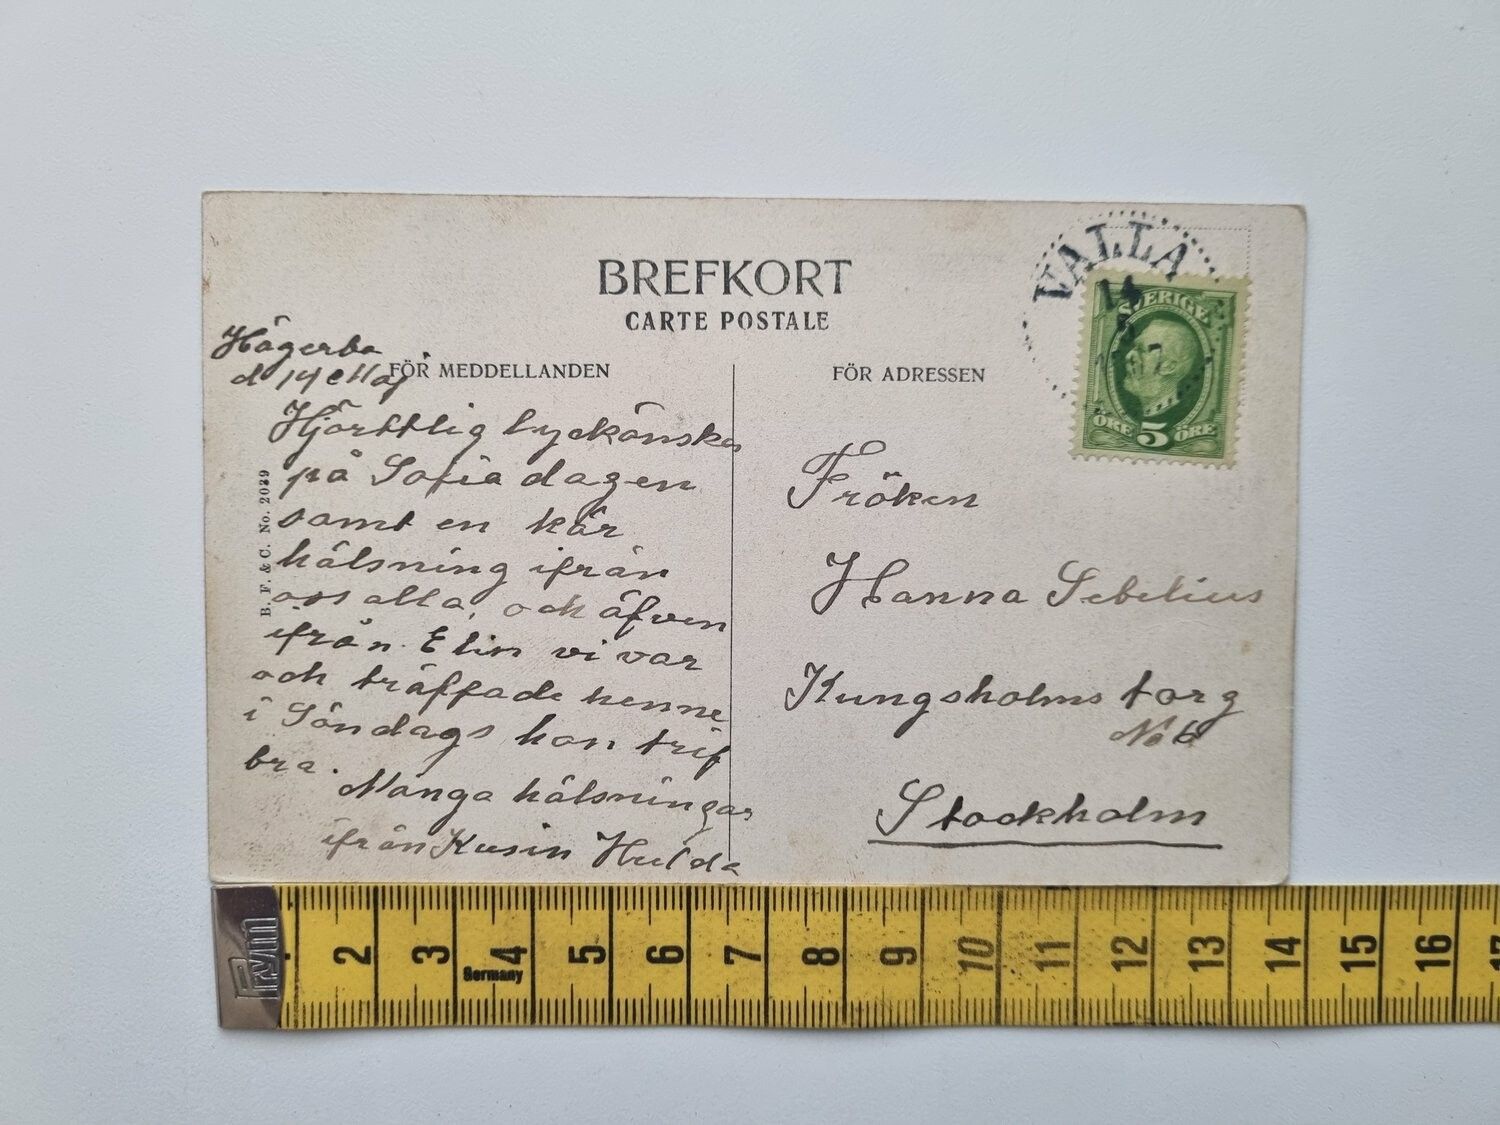 BREFKORT
CARTE POSTALE
FÖR MEDDELLANDEN
FÖR ADRESSEN
B. F. & C. No. 2029
Hägerbo
d 14 Maj
Hjärttlig lyckönskan
på Sofia dagen
samt en kär
hälsning ifrån
oss alla, och äfven
ifrån Elin vi var
och träffade henne
i Söndags hon trif
bra. Många hälsningar
ifrån Kusin Hulda
VALLA
14
5
SVERIGE
ÖRE 5 ÖRE
Fröken
Hanna Sebelius
Kungsholms torg
No 6
Stockholm
Prym
2 3 4 5 6 7 8 9 10 11 12 13 14 15 16 17
Germany